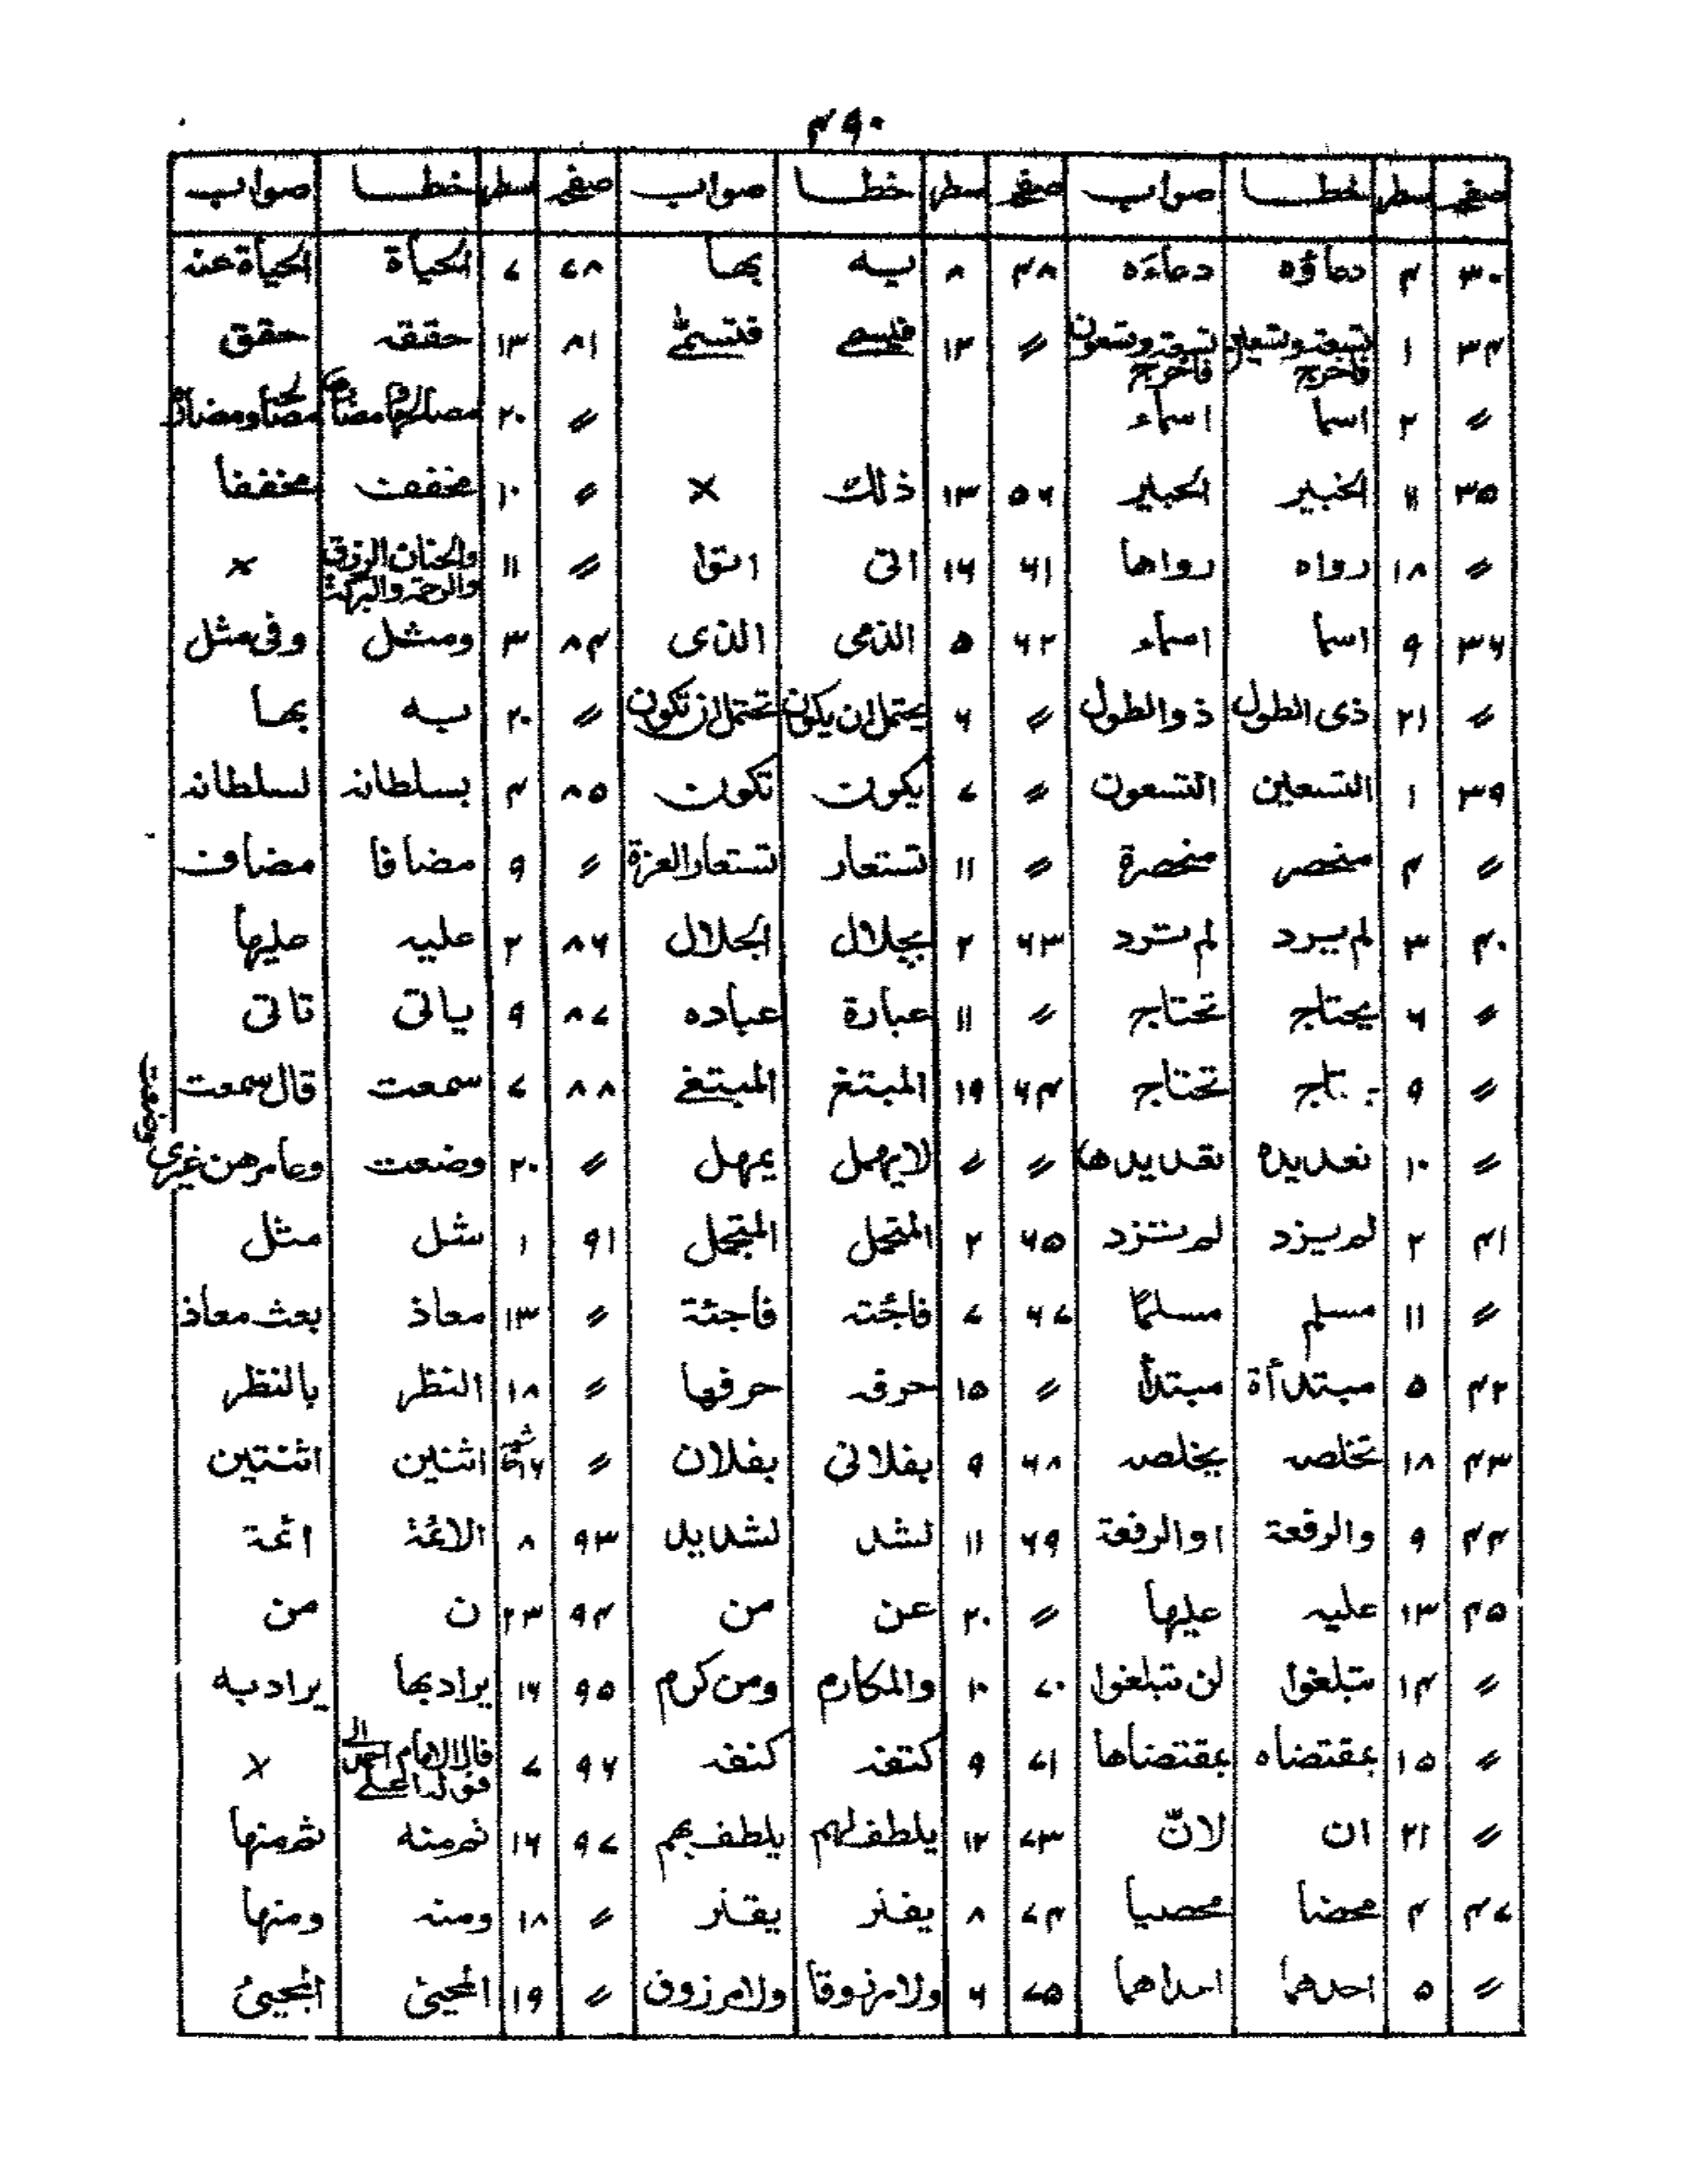 ۴۹۰
صفحہ سطر خطا صواب صفحہ سطر خطا صواب صفحہ سطر خطا صواب
۳۰ ۴ دعاؤه دعاءَه ۴۸ ۸ به بها ۷۸ ۷ الحياة الحياة عنه
۳۴ ۱ فاخرج فاخرج 〃 ۱۲ فتسمے ۸۱ ۱۳ حققه حقق
〃 ۲ اسما اسماء 〃 ۲۰
۳۵ ۱۱ الخبير الخبير ۵۶ ۱۳ ذلك × 〃 ۱۰ مخففت مخففا
〃 ۱۸ رواه رواها ۶۱ ۱۶ اتى اتوا 〃 ۱۱ والحنان الرزق والرحمة والبركة ×
۳۶ ۹ اسما اسماء ۶۲ ۵ الذمى الذى ۸۴ ۳ ومثل وفى مثل
〃 ۲۱ ذى الطول ذو الطول 〃 ۶ يحتمل ان يكون تحتمل ان تكون 〃 ۲۰ به بها
۳۹ ۱ التسعين التسعون 〃 ۷ يكون تكون ۸۵ ۴ بسلطانه لسلطانه
〃 ۴ منحصر منحصرة 〃 ۱۱ تستعار تستعار العزة 〃 ۹ مضافا مضاف
۴۰ ۳ لم يرد لم ترد ۶۳ ۲ بجلال الجلال ۸۶ ۲ عليه عليها
〃 ۶ يحتاج تحتاج 〃 ۱۱ عبارة عباده ۸۷ ۹ ياتى تاتى
〃 ۹ تاج تحتاج ۶۴ ۱۹ المبتغ المبتغے ۸۸ ۷ سمعت قال سمعت
〃 ۱۰ تعديده تعديدها 〃 〃 لا يمهل يمهل 〃 ۲۰ وضعت وعامر عن غيرى وضعت
۴۱ ۲ لم يزد لم تزد ۶۵ ۲ المتحمل المتجمل ۹۱ ۱ شل مثل
〃 ۱۱ مسلم مسلمًا ۶۷ ۷ فاجئته فاجئة 〃 ۱۳ معاذ بعث معاذ
۴۲ ۵ مبتدأة مبتدأ 〃 ۱۵ حرفه حرفها 〃 ۱۸ النظر بالنظر
۴۳ ۱۸ تخلصه يخلصه ۶۸ ۹ بفلانى بفلان 〃 اثنين اثنتين
۴۴ ۹ والرفعة او الرفعة ۶۹ ۱۱ لشد لشديد ۹۳ ۸ الائمة ائمة
۴۵ ۱۳ عليه عليها 〃 ۲۰ عن من ۹۴ ۲۳ ن من
〃 ۱۴ تبلغوا لن تبلغوا ۷۰ ۱۰ والمكارم ومن كرم ۹۵ ۱۶ يراد بها يراد به
〃 ۱۵ بمقتضاه بمقتضاها ۷۱ ۹ كتفه كنفه ۹۶ ۷ قال الامام احمد الى ×
〃 ۲۱ ان لانّ ۷۳ ۱۲ يلطف لهم يلطف بهم ۹۷ ۱۶ ثم منه ثم منها
۴۷ ۴ محضا محصيا ۷۴ ۸ يفذر يقذر 〃 ۱۸ ومنه ومنها
〃 ۵ احدهما احداهما ۷۵ ۶ ولا مرزوقا ولا مرزوق 〃 ۱۹ المحيئ المجيئ